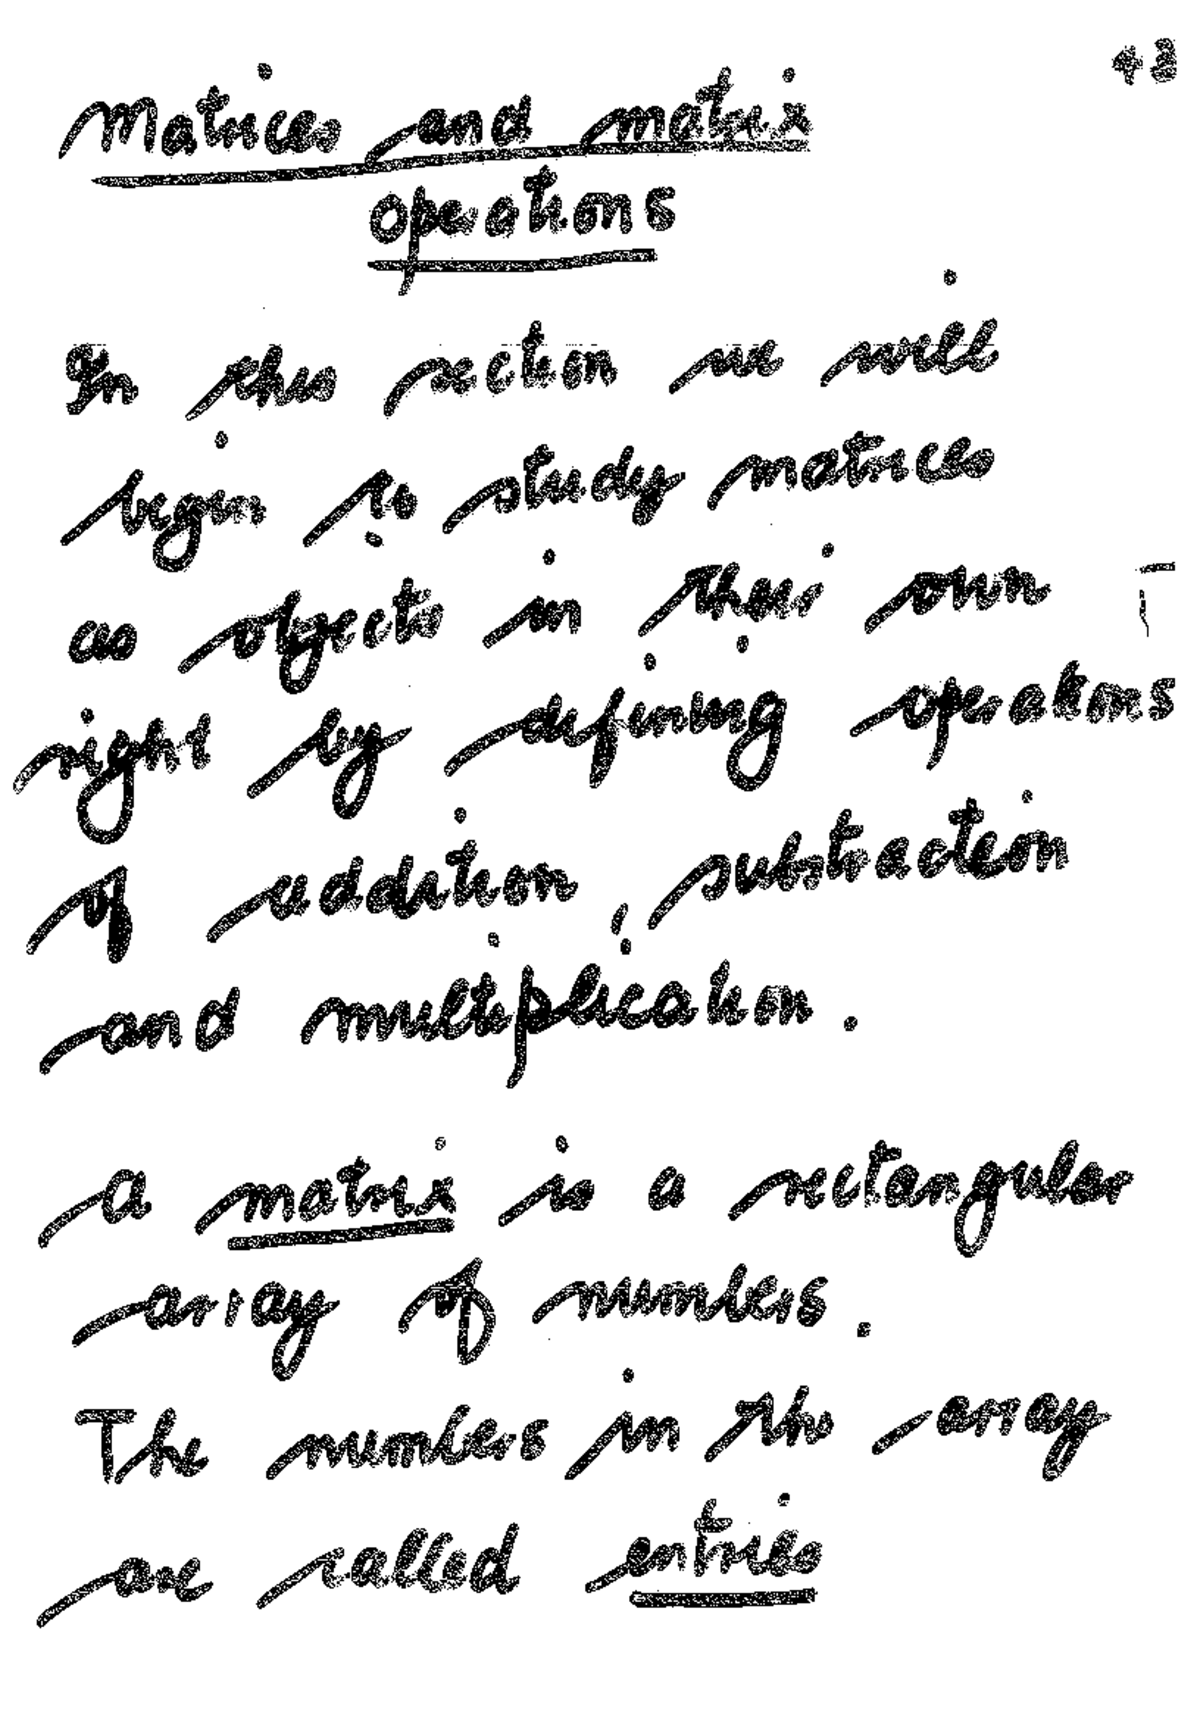 43
Matrices and matrix
operations
In this section we will
begin to study matrices
as objects in their own
right by defining operations
of addition, substraction
and multiplication.
A matrix is a rectangular
array of numbers.
The numbers in the array
are called entries